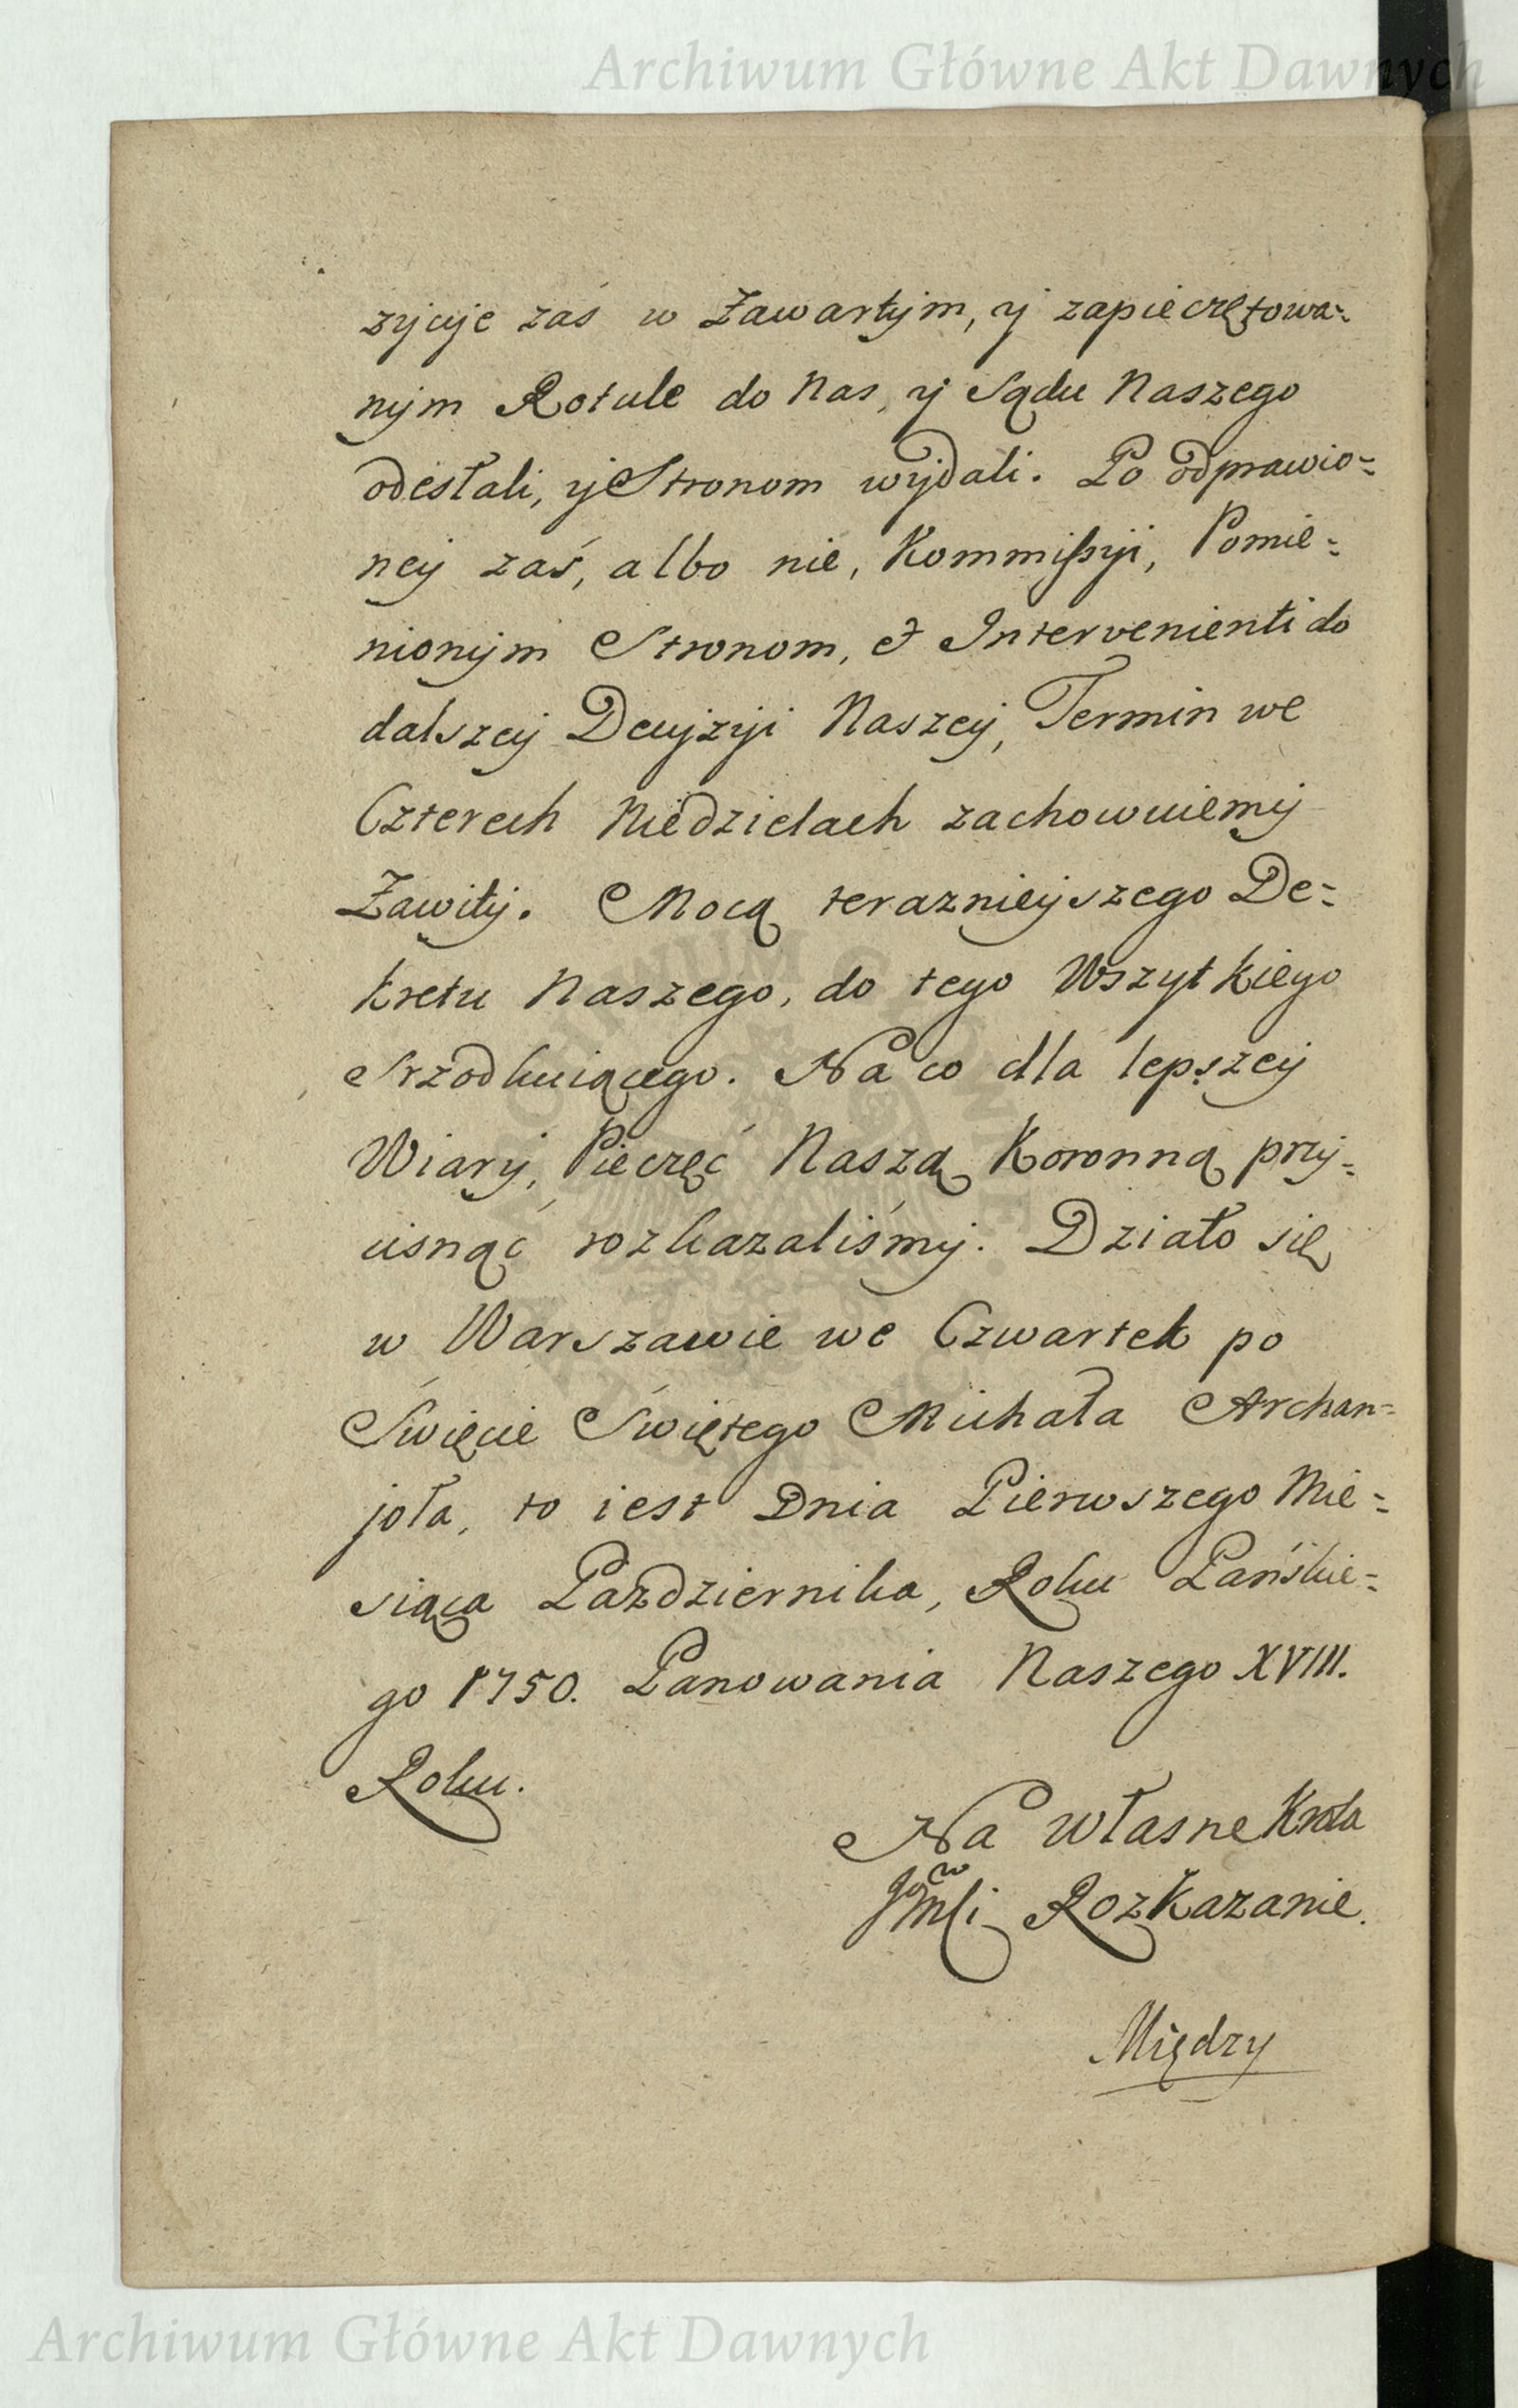 Archiwum Główne Akt Dawnych
zycyje zaś w Zawartym, y zapieczętowa=
nym Rotule do Nas, y Sądu Naszego
odesłali, y Stronom wydali. Po odprawio=
ney zaś, albo nie, Kommissyi, Pomie=
nionym Stronom, et Intervenienti do
dalszey Decyzyi Naszey, Termin we
Czterech Niedzielach zachowuiemy
Zawity. Mocą teraznieyszego De=
kretu Naszego, do tego Wszytkiego
srzodkuiącego. Na co dla lepszey
Wiary, Pieczęć Naszą Koronną przy=
cisnąć rozkazaliśmy. Działo się
w Warszawie we Czwartek po
Święcie Świętego Michała Archan=
joła, to iest Dnia Pierwszego Mie=
siąca Pazdziernika, Roku Pańskie=
go 1750. Panowania Naszego XVIII.
Roku.
Na własne Krola
Jmci Rozkazanie.
Między
Archiwum Główne Akt Dawnych